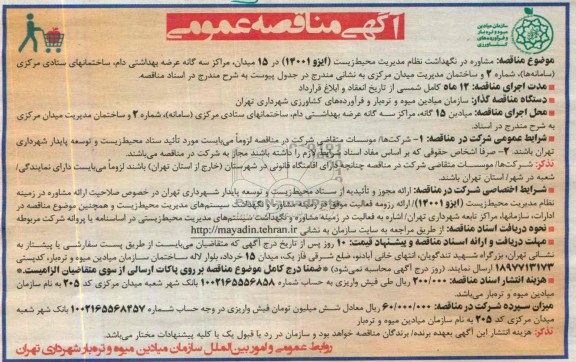 آگهی مناقصه عمومی
سازمان میادین
میوه و تره‌بار
و فرآورده‌های
کشاورزی
موضوع مناقصه: مشاوره در نگهداشت نظام مدیریت محیط‌زیست (ایزو ۱۴۰۰۱) در ۱۵ میدان، مراکز سه گانه عرضه بهداشتی دام، ساختمانهای ستادی مرکزی
(سامانه‌ها)، شماره ۲ و ساختمان مدیریت میدان مرکزی به نشانی مندرج در جدول پیوست به شرح مندرج در اسناد مناقصه.
مدت اجرای مناقصه: ۱۲ ماه کامل شمسی از تاریخ انعقاد و ابلاغ قرارداد
دستگاه مناقصه گذار: سازمان میادین میوه و تره‌بار و فرآورده‌های کشاورزی شهرداری تهران
محل اجرای مناقصه: میادین ۱۵ گانه، مراکز سه‌گانه عرضه بهداشتی دام، ساختمانهای ستادی مرکزی (سامانه)، شماره ۲ و ساختمان مدیریت میدان مرکزی
به شرح مندرج در اسناد.
شرایط عمومی شرکت در مناقصه: ۱- شرکت‌ها/ موسسات متقاضی شرکت در مناقصه لزوماً می‌بایست مورد تأئید ستاد محیط‌زیست و توسعه پایدار شهرداری
تهران باشند. ۲- صرفاً اشخاص حقوقی که بر اساس مفاد اسناد شرایط لازم را داشته باشند مجاز به شرکت در مناقصه می‌باشند.
تذکر: شرکت‌ها/ موسسات متقاضی شرکت در مناقصه چنانچه دارای اقامتگاه قانونی در شهرستان (خارج از استان تهران) باشند لزوماً می‌بایست دارای نمایندگی/
شعبه در شهر/ استان تهران باشند.
شرایط اختصاصی شرکت در مناقصه: ارائه مجوز و تأئیدیه از ستاد محیط‌زیست و توسعه پایدار شهرداری تهران در خصوص صلاحیت ارائه مشاوره در زمینه
نظام مدیریت محیط‌زیست (ایزو ۱۴۰۰۱)/ ارائه رزومه فعالیت موفق در زمینه مشاوره و نگهداشت سیستم‌های مدیریت محیط‌زیست و همچنین موضوع مناقصه در
ادارات، سازمانها، مراکز تابعه شهرداری تهران/ اشاره به فعالیت در زمینه مشاوره و نگهداشت سیستم‌های مدیریت محیط‌زیستی در اساسنامه یا پروانه شرکت مربوطه
نحوه دریافت اسناد مناقصه: از طریق مراجعه به سایت سازمان به نشانی http://mayadin.tehran.ir
مهلت دریافت و ارائه اسناد مناقصه و پیشنهاد قیمت: ۱۰ روز پس از تاریخ درج آگهی که متقاضیان می‌بایست از طریق پست سفارشی یا پیشتاز به
نشانی تهران، بزرگراه شهید تندگویان، انتهای خانی آبادنو، ضلع شرقی فاز یک، میدان ۱۵ خرداد، بلوار لاله ساختمان سازمان میادین میوه و تره‌بار، کدپستی
۱۸۹۷۷۱۳۱۷۳ ارسال نمایند. (روز درج آگهی محاسبه نمی‌شود) *ضمناً درج کامل موضوع مناقصه بر روی پاکات ارسالی از سوی متقاضیان الزامیست.*
هزینه انتشار اسناد مناقصه: ۲۰۰/۰۰۰ ریال طی فیش واریزی به حساب شماره ۱۰۰۲۱۶۵۵۵۶۸۵۸ بانک شهر شعبه میدان مرکزی کد ۲۰۵ به نام سازمان
میادین میوه و تره‌بار می‌باشد.
میزان سپرده شرکت در مناقصه: ۶۰/۰۰۰/۰۰۰ ریال معادل شش میلیون تومان فیش واریزی در وجه حساب شماره ۱۰۰۲۱۶۵۵۶۸۴۵۷ بانک شهر شعبه
میدان مرکزی کد ۲۰۵ به نام سازمان میادین میوه و تره‌بار
تذکر: هزینه انتشار این آگهی بعهده برنده/ برندگان مناقصه خواهد بود و سازمان در رد یا قبول یک یا کلیه پیشنهادات مختار می‌باشد.
روابط عمومی و امور بین‌الملل سازمان میادین میوه و تره‌بار شهرداری تهران